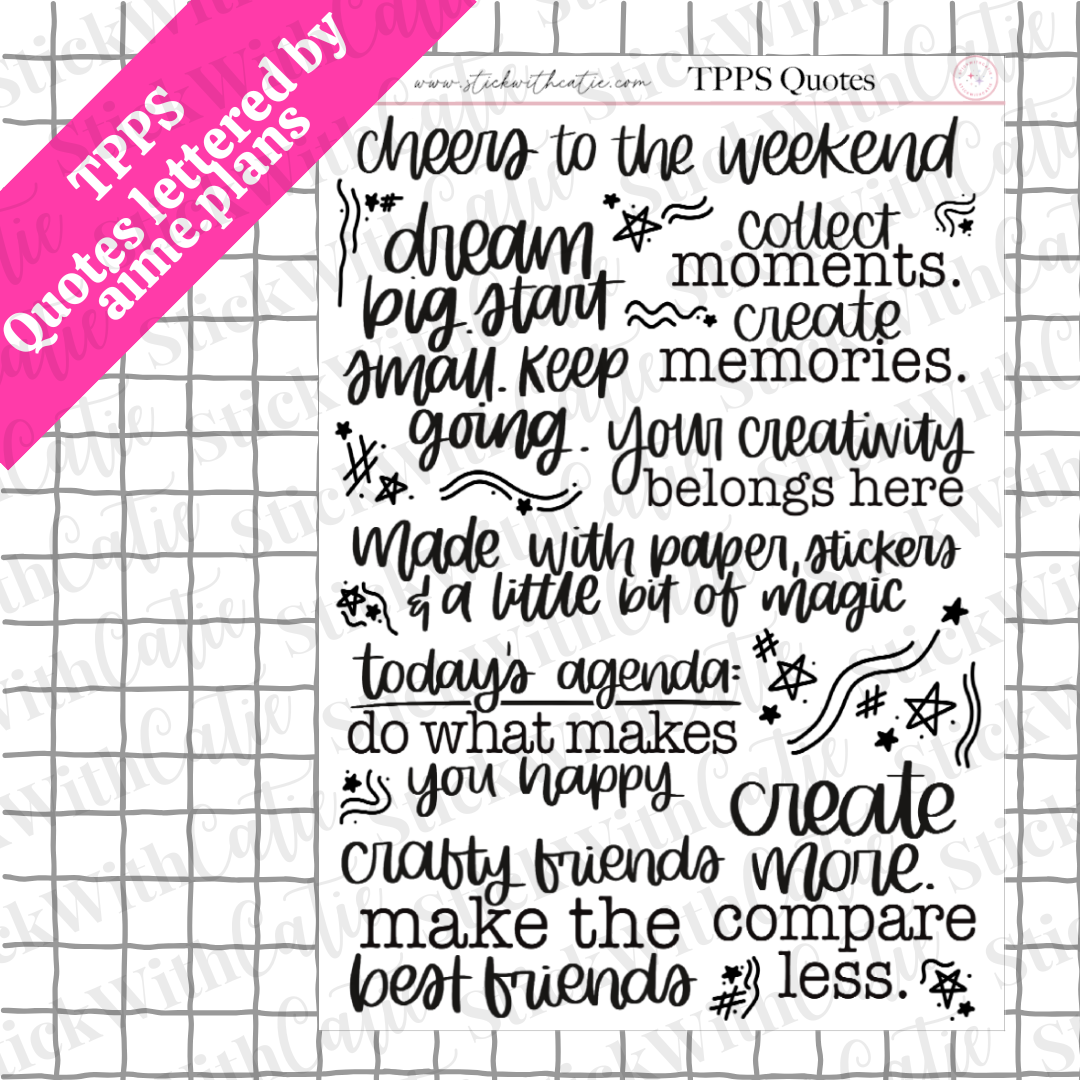 TPPS
Quotes lettered by
aime.plans
www.stickwithcatie.com
TPPS Quotes
cheers to the weekend
dream
big. start
small. keep
going.
collect
moments.
create
memories.
your creativity
belongs here
made with paper, stickers
& a little bit of magic
today's agenda:
do what makes
you happy
create
more.
compare
less.
crafty friends
make the
best friends
StickWithCatie